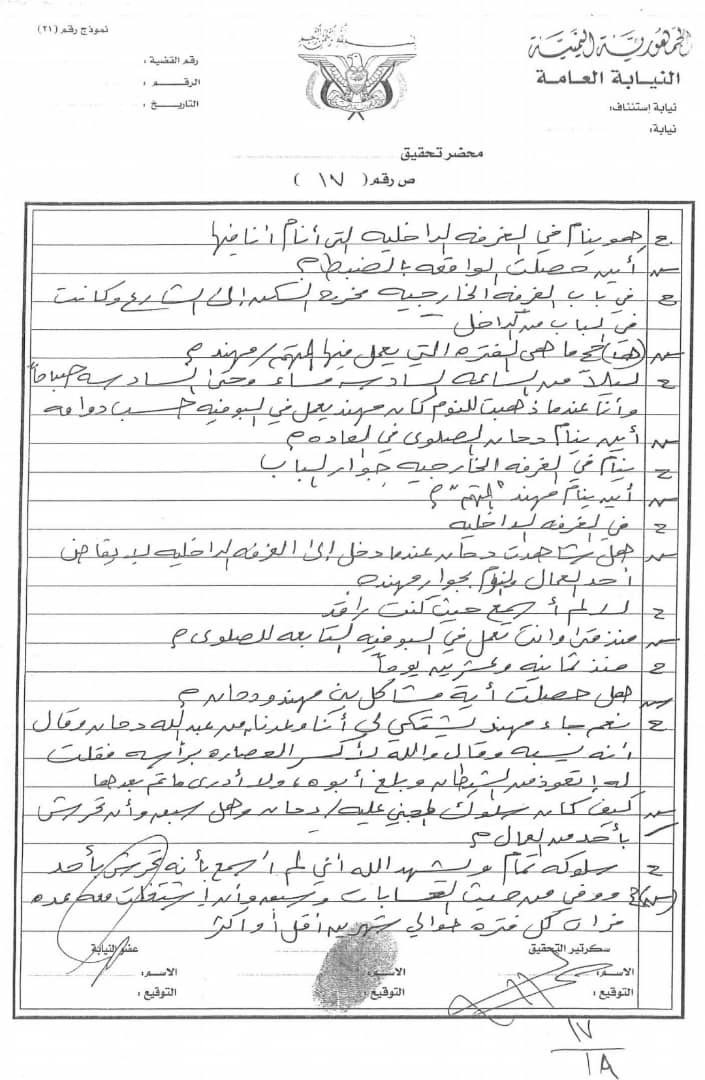 نموذج رقم (٢١)
الجمهورية اليمنية
النيابة العامة
رقم القضية :
الرقم :
التاريخ :
نيابة إستئناف:
نيابة:
محضر تحقيق
ص رقم ( ١٧ )
ج هو ينام في الغرفه الداخليه التي أنام أنا فيها
س أين حصلت الواقعه بالضبط؟
ج في باب الغرفه الخارجيه مخرج السكن إلى الشارع وكانت
في الباب من الداخل
س ما هي الفتره التي يعمل فيها المتهم/ مهند؟
ج ليلاً من الساعه السادسه مساء وحتى السادسه صباحاً
وأنا عندما ذهبت للنوم كان مهند يعمل في البوفيه حسب دوامه
س أين ينام دحان الصلوي في العاده؟
ج ينام في الغرفه الخارجيه جوار الباب
س أين ينام مهند "المتهم"؟
ج في الغرفه الداخليه
س هل شاهدت دحان عندما دخل إلى الغرفه الداخليه لإيقاض
أحد العمال بجوار مهند
ج لا لم أسمع حيث كنت راقد
س منذ متى وانت تعمل في البوفيه التابعه للصلوي؟
ج منذ ثمانيه وعشرين يوماً
س هل حصلت أية مشاكل بين مهند ودحان؟
ج نعم جاء مهند يشتكي لي أنا وعدنان من عبدالله دحان وقال
أنه يسبه وقال والله لأكسر العصاره برأسه فقلت
له إتعوذ من الشيطان وبلغ أبوه، ولا أدري ماتم بعدها
س كيف كان سلوك المجني عليه/ دحان وهل سبق وأن تحرش
بأحد من العمال؟
ج سلوكه تمام ويشهد الله أني لم أسمع بأنه تحرش بأحد
ووفي من حيث الحسابات وسبق وأن إشتغلت معه عده
مرات كل فتره حوالي شهرين أقل أو أكثر
سكرتير التحقيق
عضو النيابة
الاسم:
الاسم:
الاسم:
التوقيع:
التوقيع:
التوقيع:
١٧
١٨